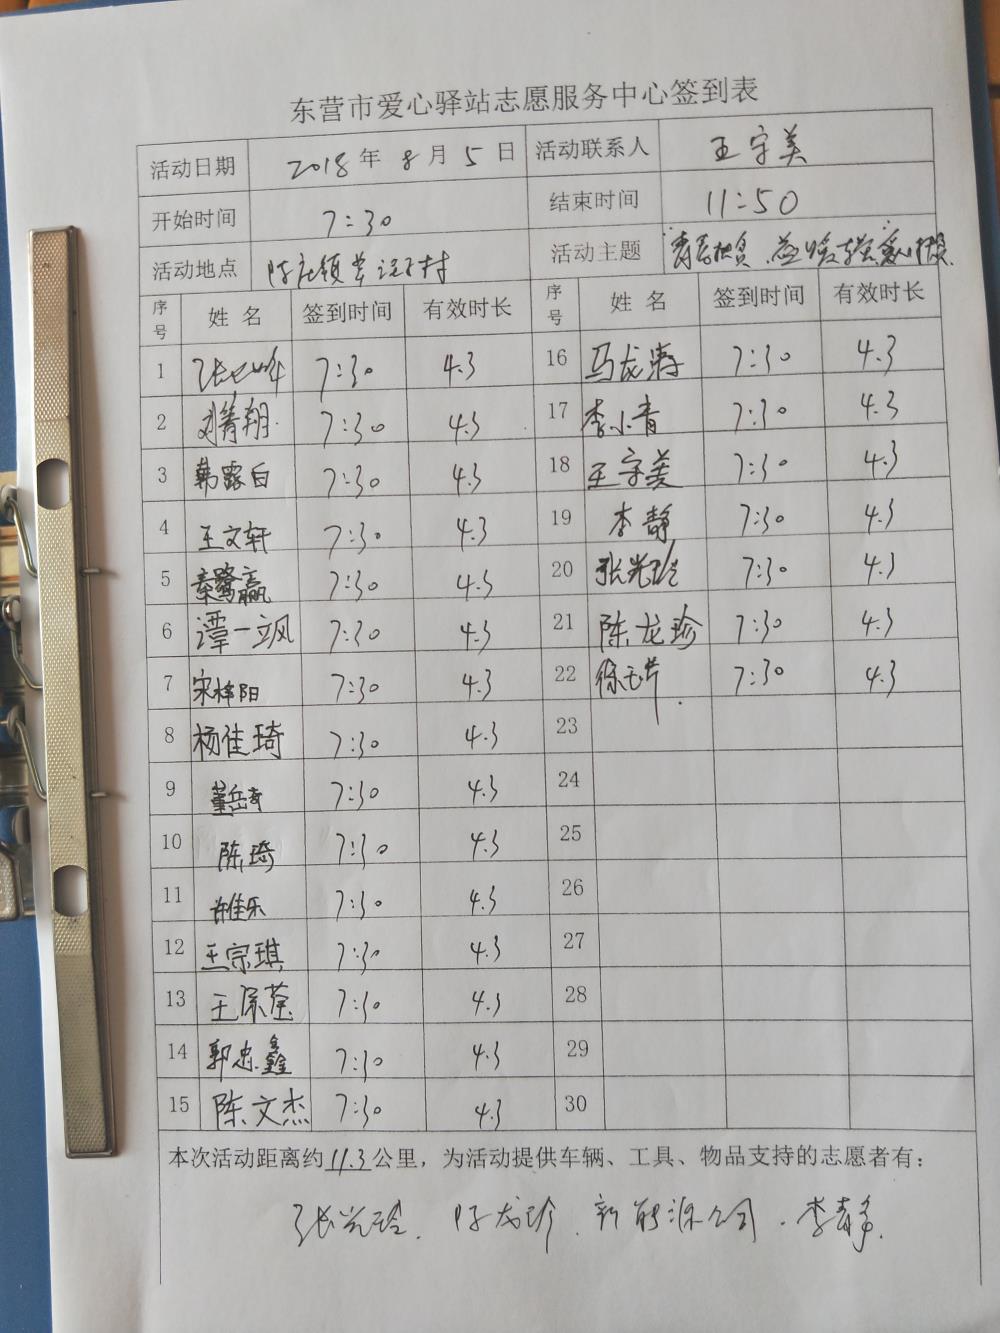 东营市爱心驿站志愿服务中心签到表
活动日期 2018年8月5日 活动联系人 王守美
开始时间 7:30 结束时间 11:50
活动地点 陈庄镇 村 活动主题
序号 姓名 签到时间 有效时长 序号 姓名 签到时间 有效时长
1 7:30 4.3 16 马龙涛 7:30 4.3
2 刘菁翔 7:30 4.3 17 李小青 7:30 4.3
3 韩露白 7:30 4.3 18 王守美 7:30 4.3
4 王文轩 7:30 4.3 19 李静 7:30 4.3
5 秦鹭赢 7:30 4.3 20 张光玲 7:30 4.3
6 谭一飒 7:30 4.3 21 陈龙珍 7:30 4.3
7 宋梓阳 7:30 4.3 22 7:30 4.3
8 杨佳琦 7:30 4.3 23
9 董岳奇 7:30 4.3 24
10 陈琦 7:30 4.3 25
11 许佳乐 7:30 4.3 26
12 王宗琪 7:30 4.3 27
13 王 莹 7:30 4.3 28
14 郭忠鑫 7:30 4.3 29
15 陈文杰 7:30 4.3 30
本次活动距离约11.3公里，为活动提供车辆、工具、物品支持的志愿者有：
张光玲、陈龙珍、新能源公司、李静